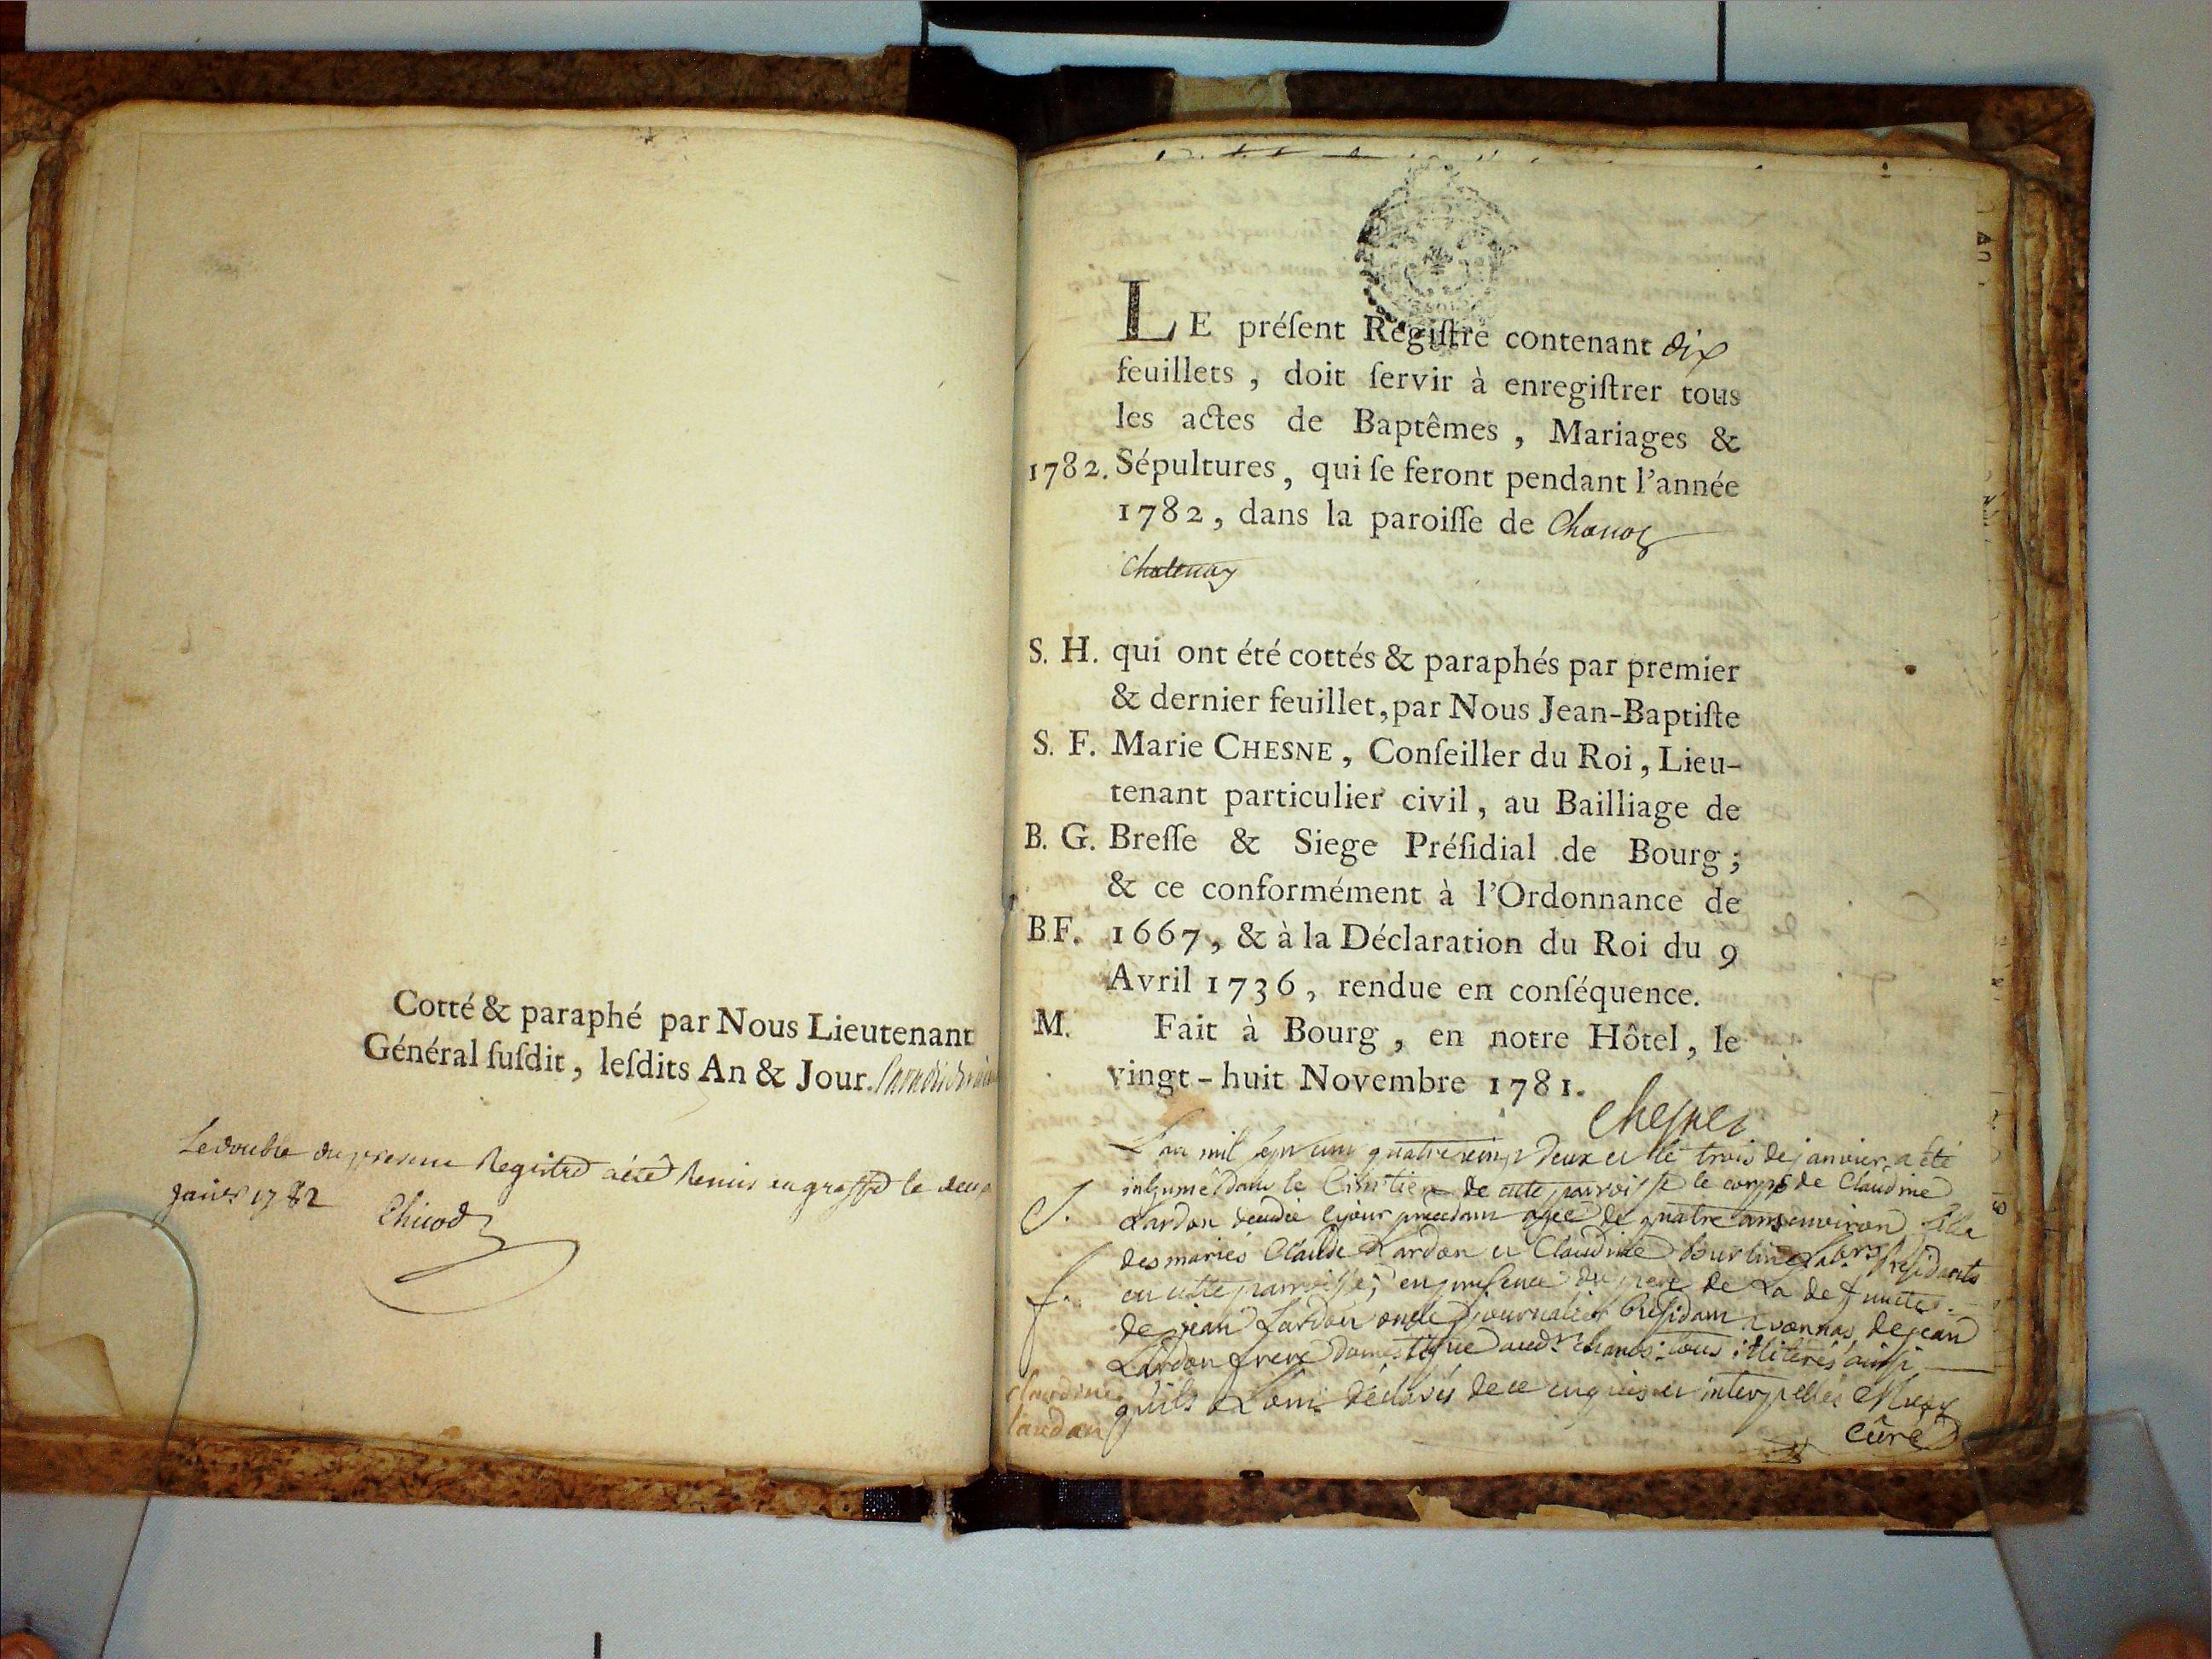 Cotté & paraphé par Nous Lieutenant
Général ſuſdit, leſdits An & Jour.
Le double du present Registre a été Remis au greffe le deux
janvr 1782
Chicod
LE préſent Regiſtre contenant dix
feuillets, doit ſervir à enregiſtrer tous
les actes de Baptêmes, Mariages &
1782. Sépultures, qui ſe feront pendant l'année
1782, dans la paroiſſe de Chanoz
Chatenay
S. H. qui ont été cottés & paraphés par premier
& dernier feuillet, par Nous Jean-Baptiſte
S. F. Marie CHESNE, Conſeiller du Roi, Lieu-
tenant particulier civil, au Bailliage de
B. G. Breſſe & Siege Préſidial de Bourg;
& ce conformément à l'Ordonnance de
B F. 1667, & à la Déclaration du Roi du 9
Avril 1736, rendue en conſéquence.
M. Fait à Bourg, en notre Hôtel, le
vingt-huit Novembre 1781.
Chesne
L'an mil sept cent quatre vingt deux et le trois de janvier a été
inhumé dans le Cimetiere de cette parroisse le corps de Claudine
S. Lardon decedée le jour precedant agée de quatre ans environ fille
des mariés Claude Lardon et Claudine residants
f. en cette parroisse; en presence du pere de La defunte
de jean Lardon oncle journalier Residant a vonnas, de jean
Lardon frere domestique aud. chanos tous illiterés ainsi
Claudine
Lardon
qu'ils L'ont déclarés de ce enquis et interpellés
Cûré